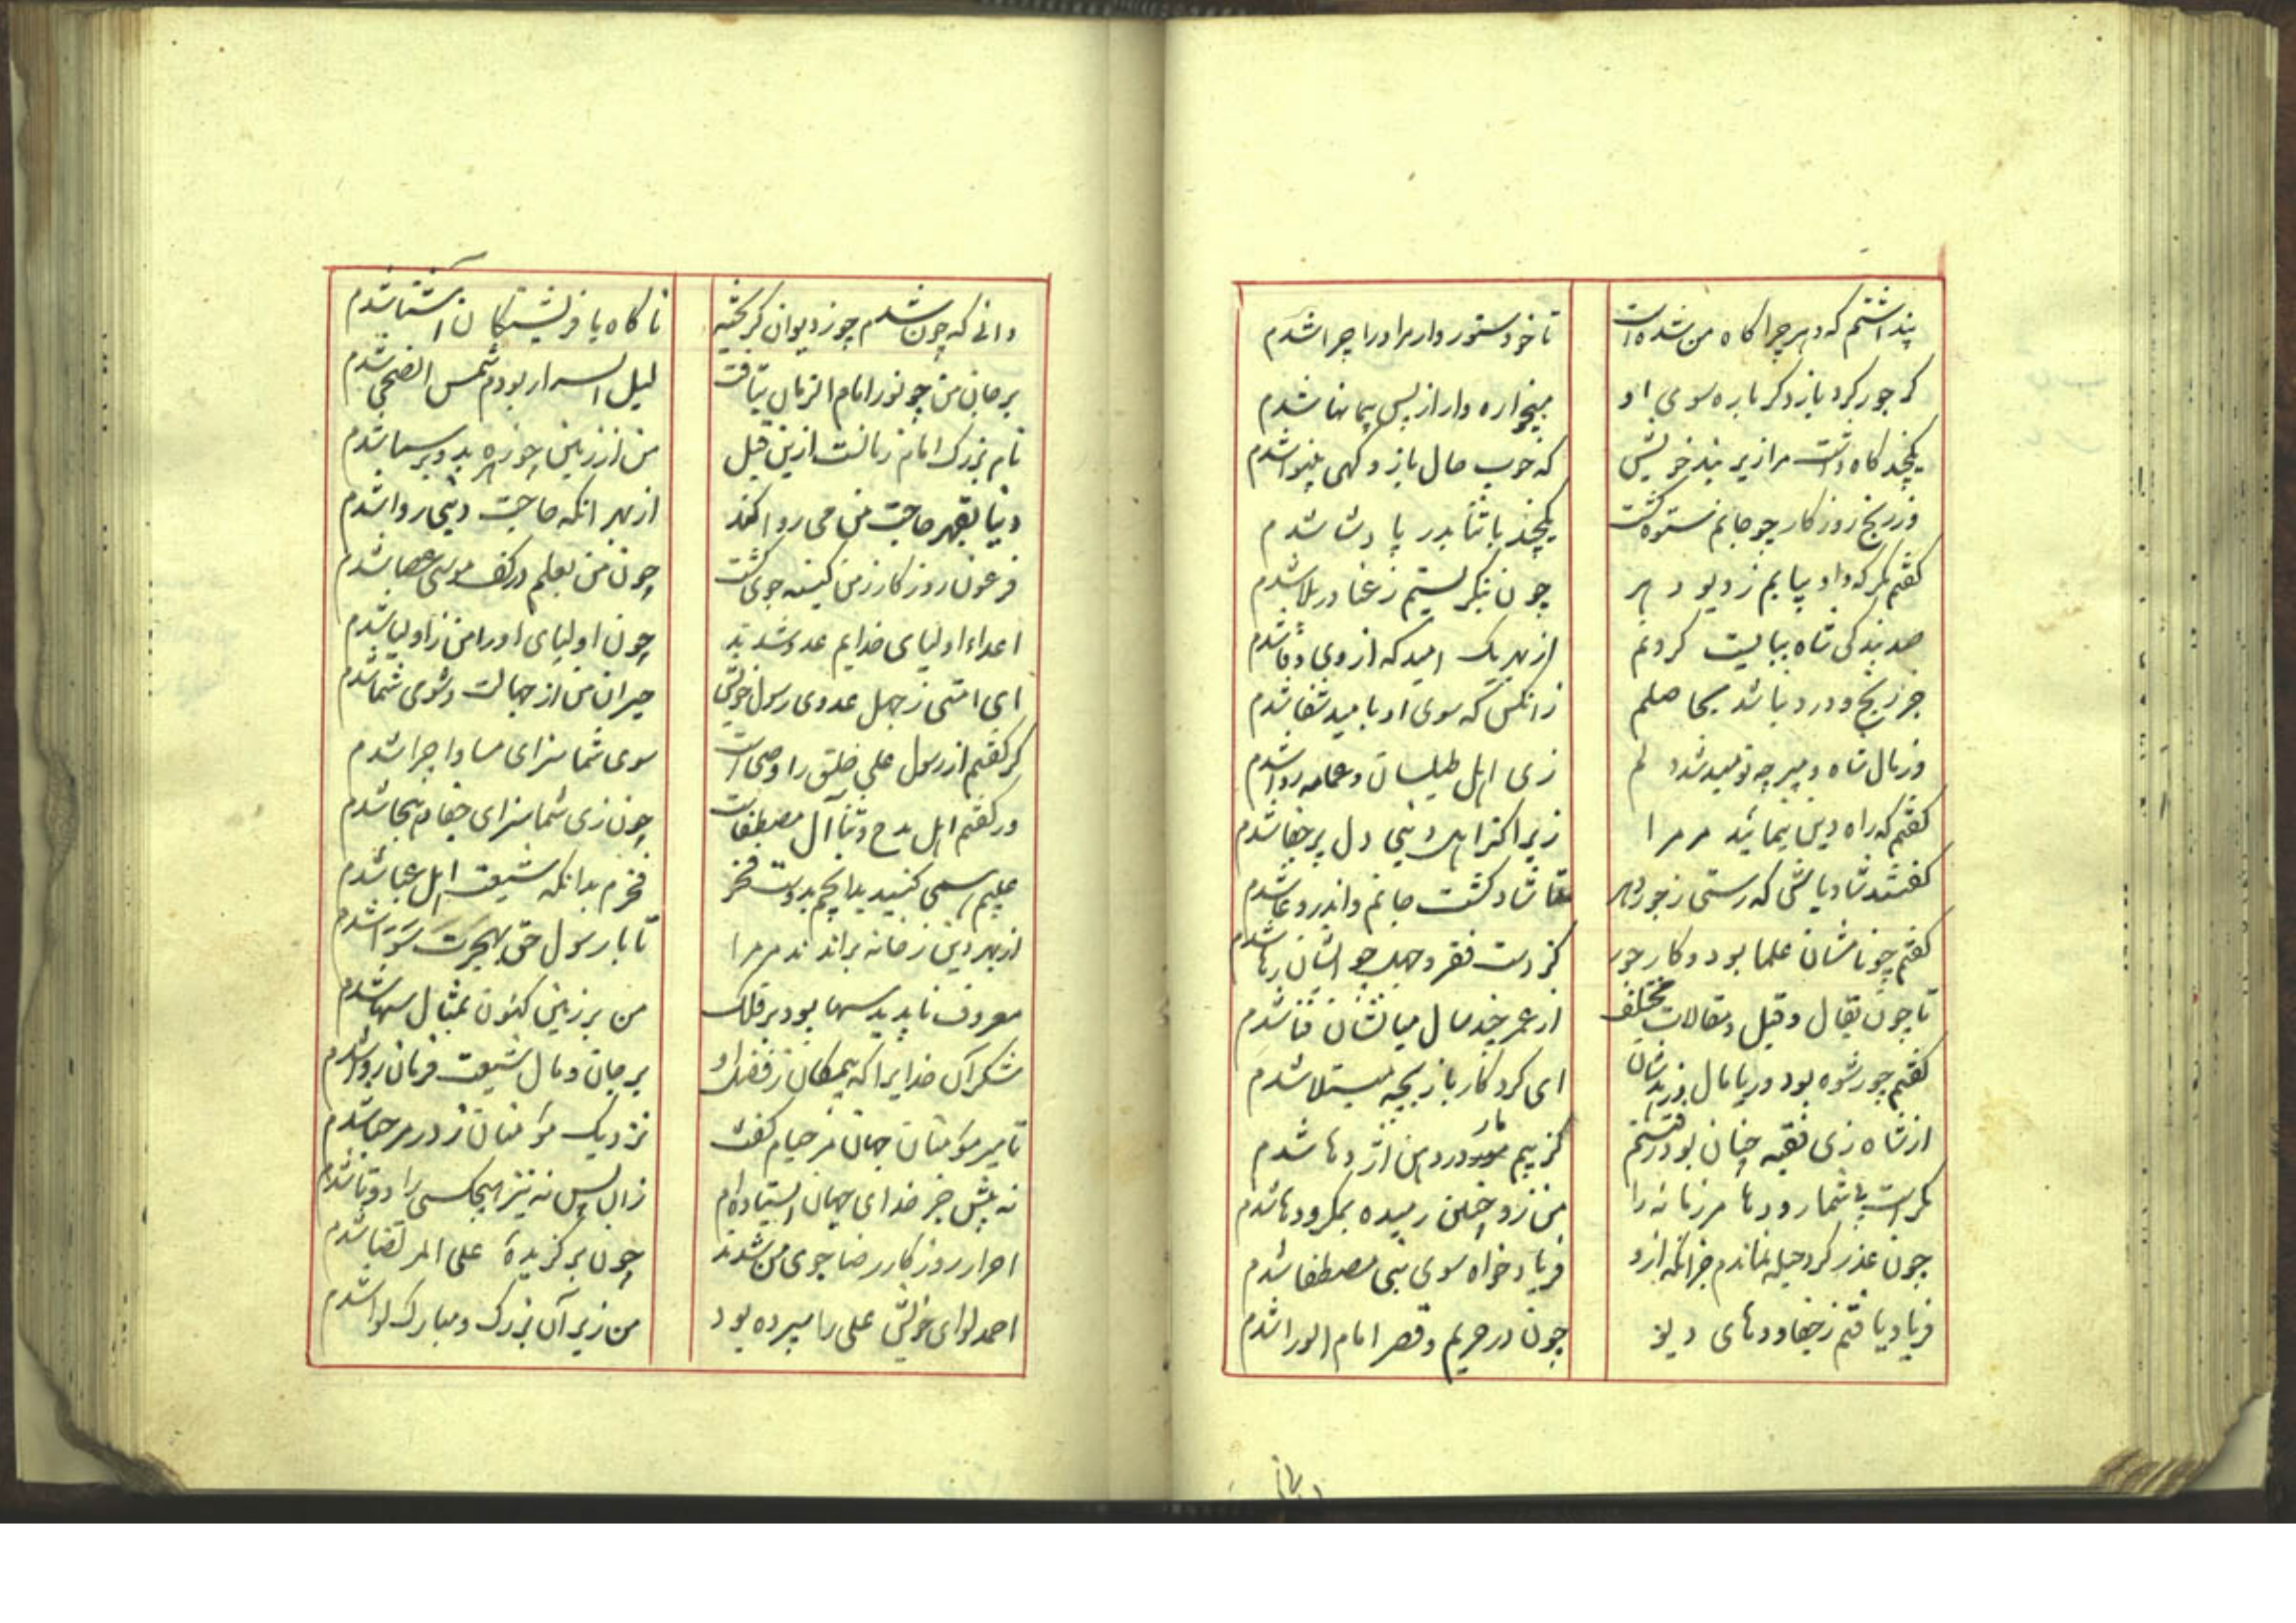 پنداشتم که دهر چراگاه من شده است تا خود ستوروار مر او را چرا شدم
گر جور کرد باز دگر باره سوی او میخواره وار از پس پیمانها شدم
یکچند گاه داشت مرا زیر بند خویش که خوب حال باز و گهی بینوا شدم
وز رنج روزگار چو جانم ستوه گشت یکچند با ثنا بدر پادشا شدم
گفتم مگر که داد بیابم ز دیو دهر چون بنگریستم ز عنا در بلا شدم
صد بندگی شاه ببایست کردنم از بهر یک امید که از وی وفا شدم
جز رنج و درد نباشد بحاصلم زانکس که سوی او بامید شفا شدم
وز مال شاه و میر چو نومید شد دلم زی اهل طیلسان و عمامه و ردا شدم
گفتم که راه دین بنمائید مر مرا زیرا که ز اهل دنیی دل پر جفا شدم
گفتند شاد باش که رستی ز جور دهر تا شاد گشت جانم و اندر دعا شدم
گفتم چو نامشان علما بود و کار جور کز دست فقر و جهل چو ایشان رها شدم
تا چون بقال و قیل و مقالات مختلف از عمر چند سال میانشان فنا شدم
گفتم چو رشوه بود و ریا مال و زهدشان ای کردگار باز بچه مبتلا شدم
از شاه زی فقیه چنان بود رفتنم کز بیم مار در دهن اژدها شدم
مکر است بی شمار و دها مر زمانه را من زو چنین رمیده بمکر و دها شدم
چون غدر کرد حیله نماندم جز آنکه ازو فریاد خواه سوی نبی مصطفا شدم
فریاد یافتم ز جفا و دهای دیو چون در حریم و قصر امام الورا شدم
دانی که چون شدم چو ز دیوان گریخته ناگاه با فرشتگان آشنا شدم
بر جان من چو نور امام الزمان بتافت لیل السرار بودم شمس الضحی شدم
نام بزرگ امام زمانست ازین قبل من از زمین چو زهره بدو بر سما شدم
دنیا بقهر حاجت من می روا کند از بهر آنکه حاجت دنیی روا شدم
فرعون روزگار ز من کینه جوی گشت چون من بعلم در کف موسی عصا شدم
اعداء اولیای خدایم عدو شدند چون اولیای او را من ز اولیا شدم
ای امتی ز جهل عدوی رسول خویش حیران من از جهالت و شومی شما شدم
گر گفتم از رسول علی خلق را وصی است سوی شما سزای مساوا چرا شدم
ور گفتم اهل مدح و ثنا آل مصطفاست چون زی شما سزای جفا و هجا شدم
عیبم همی کنید بدانچم بدوست فخر فخرم بدانکه شیعت اهل عبا شدم
از بهر دین ز خانه براندند مر مرا تا با رسول حق بهجرت سوا شدم
معروف ناپدید سها بود بر فلک من بر زمین کنون بمثال سها شدم
شکر آن خدایرا که بیمگان ز فضل او بر جان و مال شیعت فرمان روا شدم
تا میر مؤمنان جهان مرحبام گفت نزدیک مؤمنان ز در مرحبا شدم
نه پیش جز خدای جهان ایستاده ام زان پس نه نیز هیچکسی را دوتا شدم
احرار روزگار رضاجوی من شدند چون برگزیدهٔ علی المرتضا شدم
احمد لوای خویش علی را سپرده بود من زیر آن بزرگ و مبارک لوا شدم